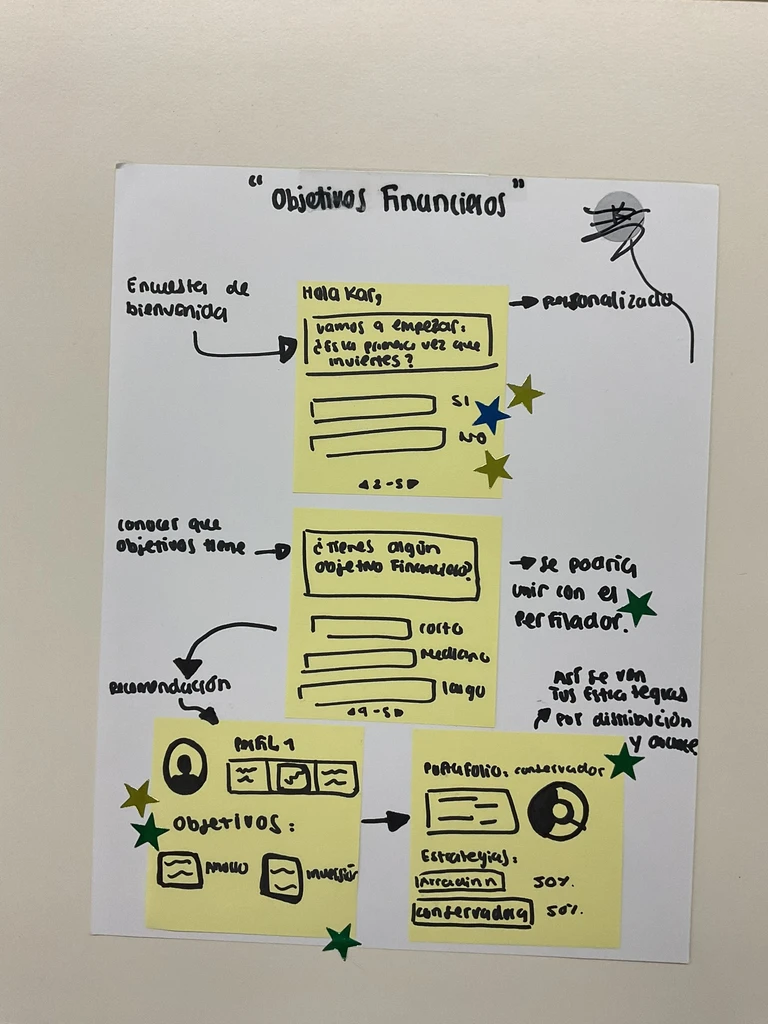 "Objetivos Financieros"
Encuesta de
bienvenida
Hola Kar,
vamos a empezar:
¿Es la primera vez que
inviertes?
SI
NO
→ personalizado
conocer que
objetivos tiene
¿Tienes algún
objetivo Financiero?
corto
Mediano
largo
→ se podría
unir con el
perfilador.
Recomendación
Perfil 1
Objetivos:
Inversión
Así se ven
Tus Estrategias
por distribución
y
Portafolio: conservador
Estrategias:
50%.
conservadora 50%.